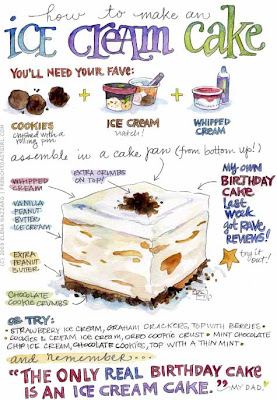 how to make an
ICE CREAM CAKE
YOU'LL NEED YOUR FAVE:
COOKIES
crushed with a
rolling pin
ICE CREAM
natch!
WHIPPED
CREAM
assemble in a cake pan (from bottom up!)
WHIPPED
CREAM
EXTRA CRUMBS
ON TOP!
VANILLA
PEANUT
BUTTER
ICE CREAM
EXTRA
PEANUT
BUTTER
CHOCOLATE
COOKIE CRUMBS
MY OWN
BIRTHDAY
CAKE
LAST
WEEK
GOT RAVE
REVIEWS!
try it
out!
OR TRY:
• STRAWBERRY ICE CREAM, GRAHAM CRACKERS, TOP WITH BERRIES •
COOKIES & CREAM ICE CREAM, OREO COOKIE CRUST • MINT CHOCOLATE
CHIP ICE CREAM, CHOCOLATE COOKIES, TOP WITH A THIN MINT •
and remember...
"THE ONLY REAL BIRTHDAY CAKE
IS AN ICE CREAM CAKE."
- MY DAD